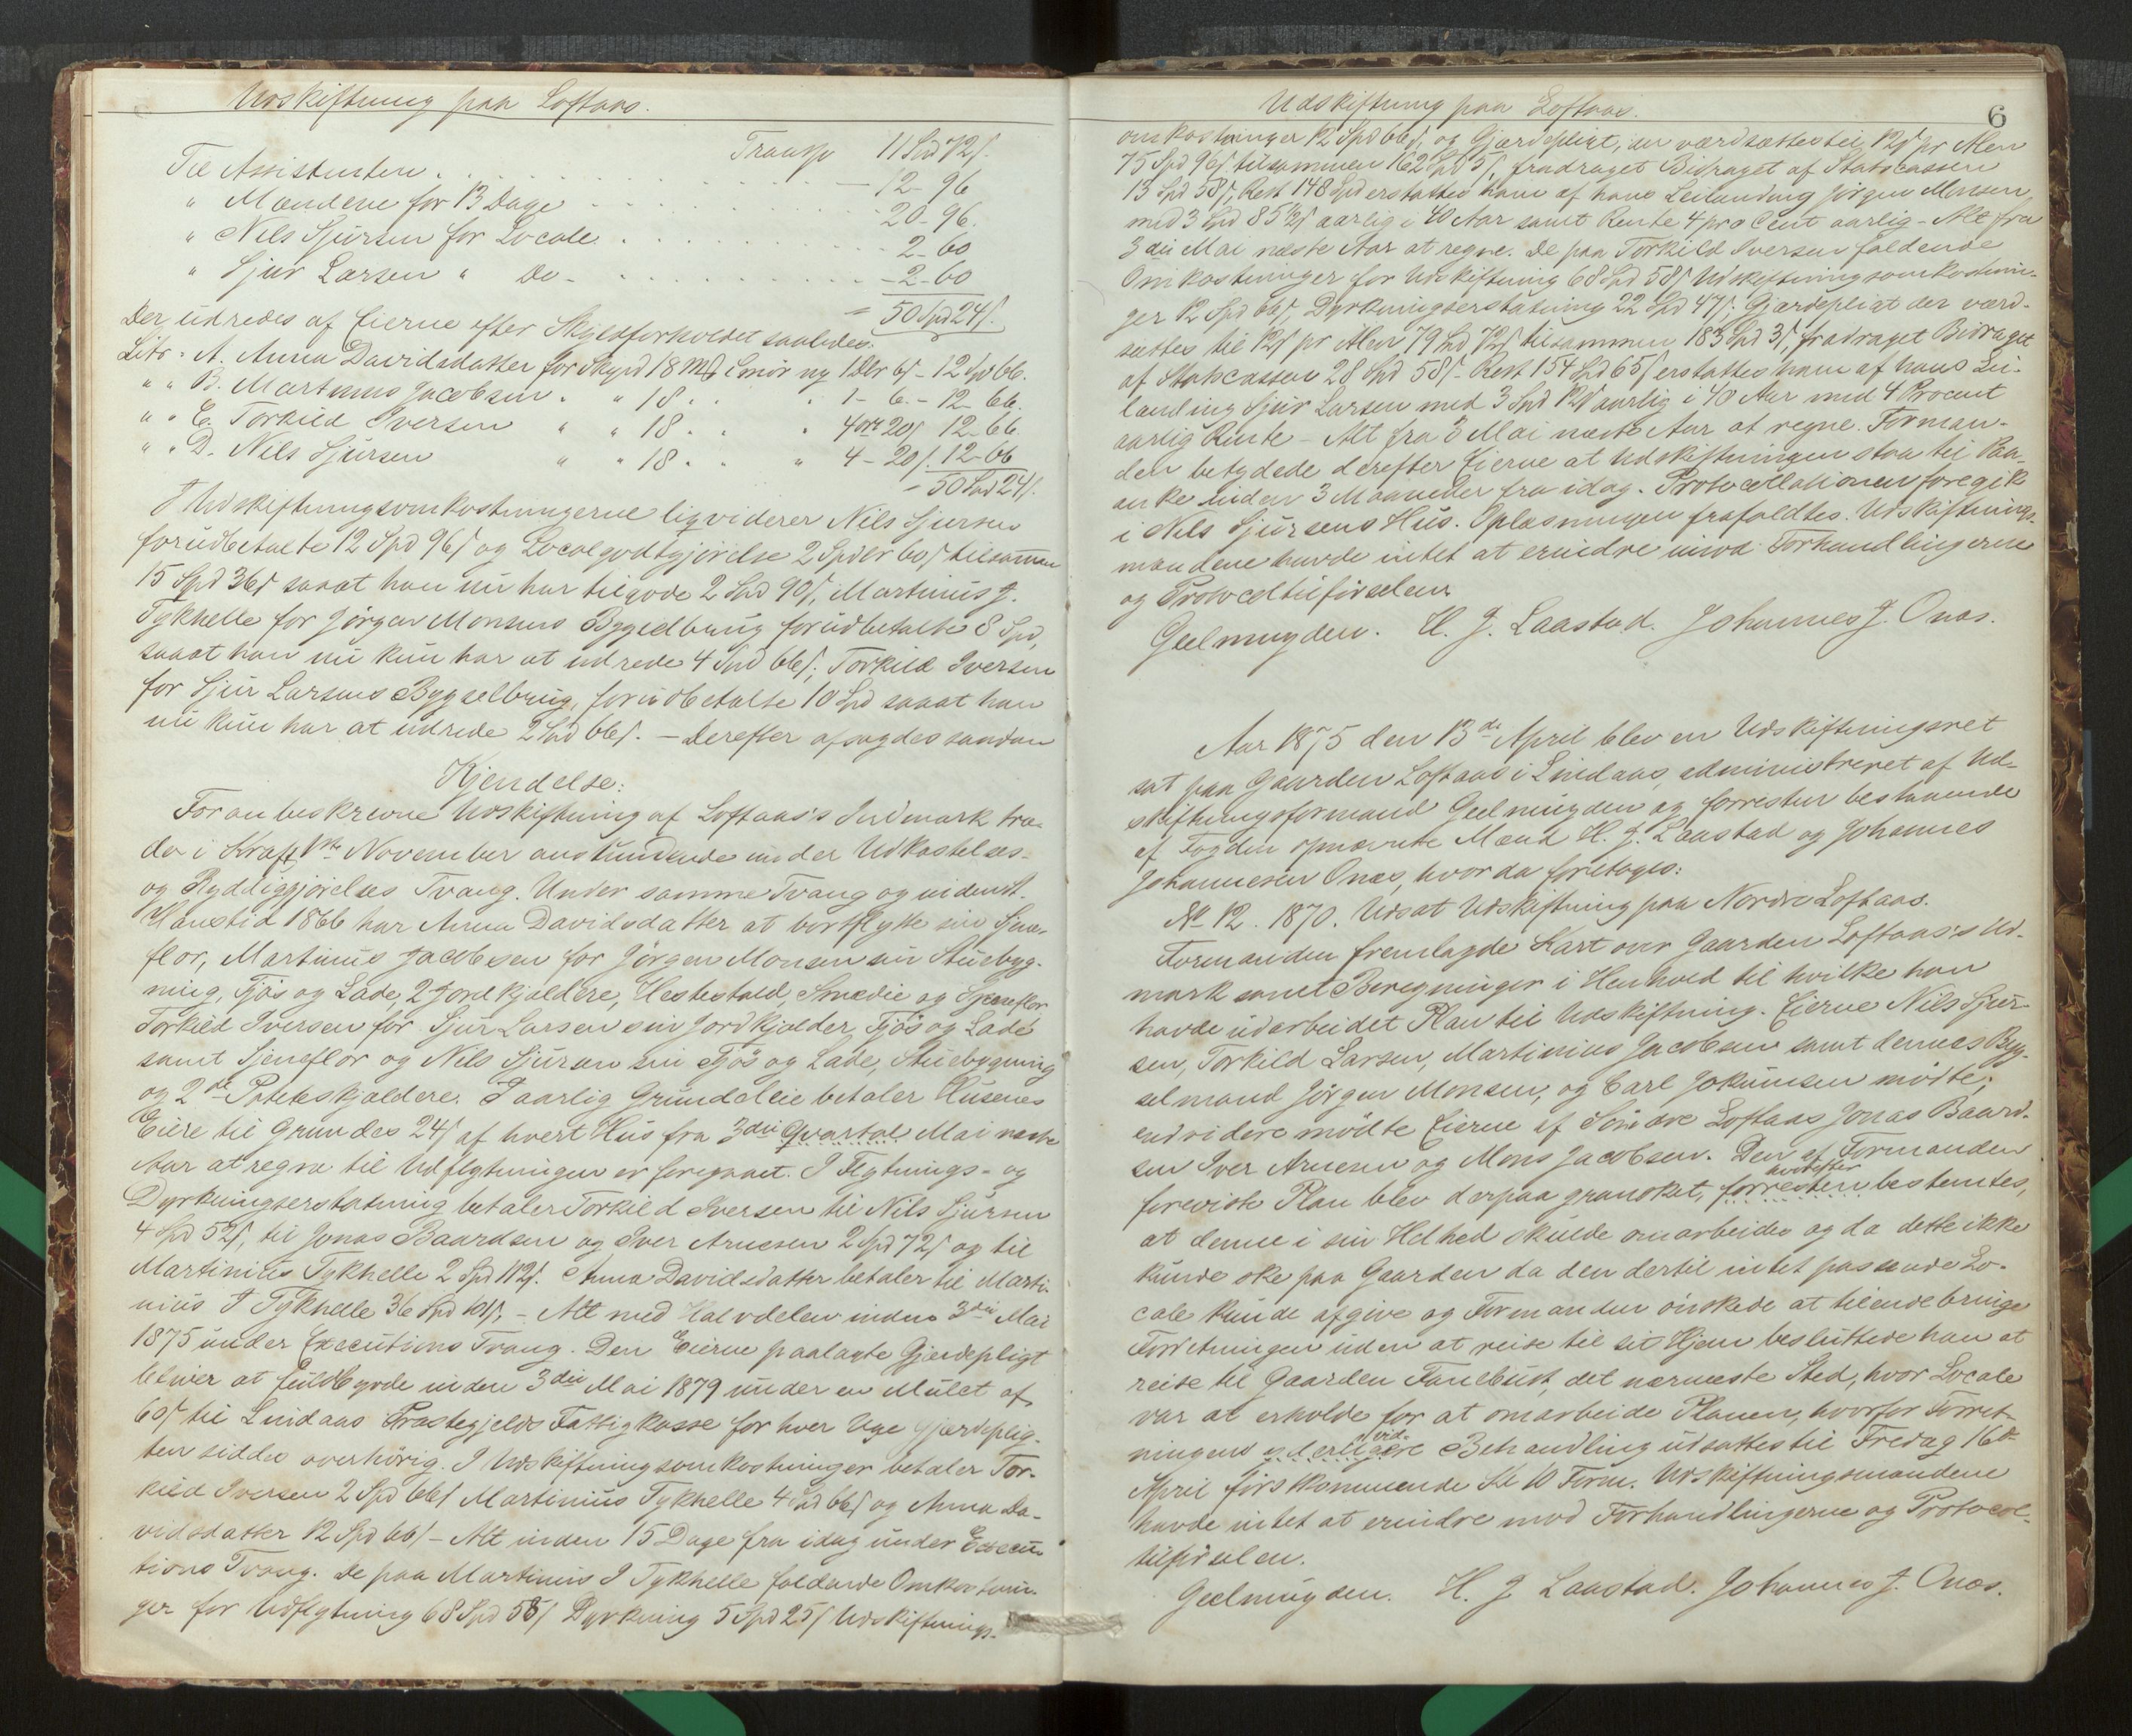 Udskiftning paa Loftaas.
Transp 11 Spd 72 s.
Til Assistenten . . . . . . . . — 12 - 96
" Mændene for 13 Dage . . . . . . 20 - 96.
" Nils Sjursen for Locale . . . . . . 2 - 60
" Sjur Larsen " Do - . . . . . . - 2 - 60
= 50 Spd 24 s.
Der udredes af Eierne efter Skyldforholdet saaledes:
Litr. A. Anna Davidsdatter for Skyld 18 Mk Smör ny 1 Dlr 6 s - 12 Spd 66.
" " B. Martinus Jacobsen . " 18 . . " 1 - 6. - 12 - 66.
" " C. Torkild Iversen " " 18 . . " 4 ort 20 s 12 - 66.
" " D. Nils Sjursen " " 18 . . " 4 - 20 s. 12 - 66
= 50 Spd 24 s.
I Udskiftningsomkostningerne liqviderer Nils Sjursen
forudbetalte 12 Spd 96 s og Localgodtgjørelse 2 Spdlr 60 s tilsammen
15 Spd 36 s saaat han nu har tilgode 2 Spd 90 s, Martinius J.
Tykhelle for Jørgen Monsens Bygselbrug forudbetalte 8 Spd,
saaat han nu kun har at udrede 4 Spd 66 s; Torkild Iversen
for Sjur Larsens Bygselbrug, forudbetalte 10 Spd saaat han
nu kun har at udrede 2 Spd 66 s. — Derefter afsagdes saadan
Kjendelse:
Foranbeskrevne Udskiftning af Loftaas's Indmark træ-
der i Kraft 1ste November anstundende under Udkastelses-
og Ryddiggjørelses Tvang. Under samme Tvang og inden
Høusttid 1866 har Anna Davidsdatter at bortflytte sin
flor, Martinius Jacobsen for Jørgen Monsen sin Stuebyg-
ning, Fjös og Lade, 2 Jordkjældere, Hestestald, Smedie og
Torkild Iversen for Sjur Larsen sin Jordkjelder, Fjös og Lade
samt Sjeneflor og Nils Sjursen sin Fjös og Lade, Stuebygning
og 2de Poteteskjældere. I aarlig Grundleie betaler Husenes
Eiere til Grundes 24 s af hvert Hus fra 3die Qvartal Mai næste
Aar at regne til Udflytningen er foregaaet. I Flytnings- og
Dyrkningserstatning betaler Torkild Iversen til Nils Sjursen
4 Spd 52 s, til Jonas Baardsen og Iver Arnesen 2 Spd 72 s og til
Martinius Tykhelle 2 Spd 112 s. Anna Davidsdatter betaler til Marti-
nius J Tykhelle 36 Spd 101 s, - Alt med Halvdelen inden 3die Mai
1875 under Executions Tvang. Den Eierne paalagte Gjerdepligt
bliver at fuldbyrde inden 3die Mai 1879 under en Mulct af
60 s til Lindaas Præstegjelds Fattigkasse for hver Uge Gjerdeplig-
ten siddes overhörig. I Udskiftningsomkostninger betaler Tor-
kild Iversen 2 Spd 66 s Martinius Tykhelle 4 Spd 66 s og Anna Da-
vidsdatter 12 Spd 66 s - Alt inden 15 Dage fra idag under Execu-
tions Tvang. De paa Martinius J Tykhelle faldende Omkostnin-
ger for Udflytning 68 Spd 58 s Dyrkning 5 Spd 25 s Udskiftnings-
Udskiftning paa Loftaas.
6
omkostninger 12 Spd 66 s, og Gjærdepligt, der værdsættes til 12 s pr Alen
75 Spd 96 s. tilsammen 162 Spd 5 s, fradraget Bidraget af Statscassen
13 Spd 58 s, Rest 148 Spd erstattes ham af hans Leilænding Jörgen Monsen,
med 3 Spd 85 1/2 s aarlig i 40 Aar samt Rente 4 pro Cent aarlig - Alt fra
3die Mai næste Aar at regne. De paa Torkild Iversen faldende
Omkostninger for Udskiftning 68 Spd 58 s Udskiftningsomkostnin-
ger 12 Spd 66 s, Dyrkningserstatning 22 Spd 47 s. Gjærdepligt der værd-
sættes til 12 s pr Alen 79 Spd 72 s tilsammen 183 Spd 3 s, fradraget Bidraget
af Statscassen 28 Spd 58 s - Rest 154 Spd 65 s erstattes ham af hans Lei-
lænding Sjur Larsen med 3 Spd 12 s aarlig i 40 Aar med 4 Procent
aarlig Rente - Alt fra 3 Mai næste Aar at regne. Forman-
den betydede derefter Eierne at Udskiftningen staa til Paa-
anke inden 3 Maaneder fra idag. Protocollationen foregik
i Nils Sjursens Hus. Oplæsningen frafaldtes. Udskiftnings-
mændene havde intet at erindre imod Forhandlingerne
og Protocoltilførselen.
Geelmuyden. H. J. Laastad. Johannes J. Onæs.
Aar 1875 den 13de April blev en Udskiftningsret
sat paa Gaarden Loftaas i Lindaas, administreret af Ud-
skiftningsformand Geelmuyden og forresten bestaaende
af Fogden opnævnte Mænd H. J. Laastad og Johannes
Johannesen Onæs, hvor da foretoges:
No 12. 1870. Udsat Udskiftning paa Nordre Loftaas.
Formanden fremlagde Kart over Gaarden Loftaas's Ud-
mark samt Beregninger i Henhold til hvilke han
havde udarbeidet Plan til Udskiftning. Eierne Nils Sjur-
sen, Torkild Larsen, Martinius Jacobsen samt dennes Byg-
selmand Jörgen Monsen, og Carl Jokumsen mødte;
endvidere mödte Eierne af Söndre Loftaas Jonas Baard-
sen Iver Arnesen og Mons Jacobsen. Den af Formanden
hvorefter
foreviste Plan blev derpaa gransket, forresten bestemtes,
at denne i sin Helhed skulde omarbeides og da dette ikke
kunde ske paa Gaarden da den dertil intet passende Lo-
cale kunde afgive og Formanden önskede at tilendebringe
Forretningen uden at reise til sit Hjem besluttede han at
reise til Gaarden Fanebust, det nærmeste Sted, hvor Locale
var at erholde for at omarbeide Planen, hvorfor Forret-
vid-
ningens yderligere Behandling udsattes til Fredag 16de
April førstkommende Kl 10 Form. Udskiftningsmændene
havde intet at erindre mod Forhandlingerne og Protocol-
tilførselen.
Geelmuyden. H. J Laastad. Johannes J. Onæs.